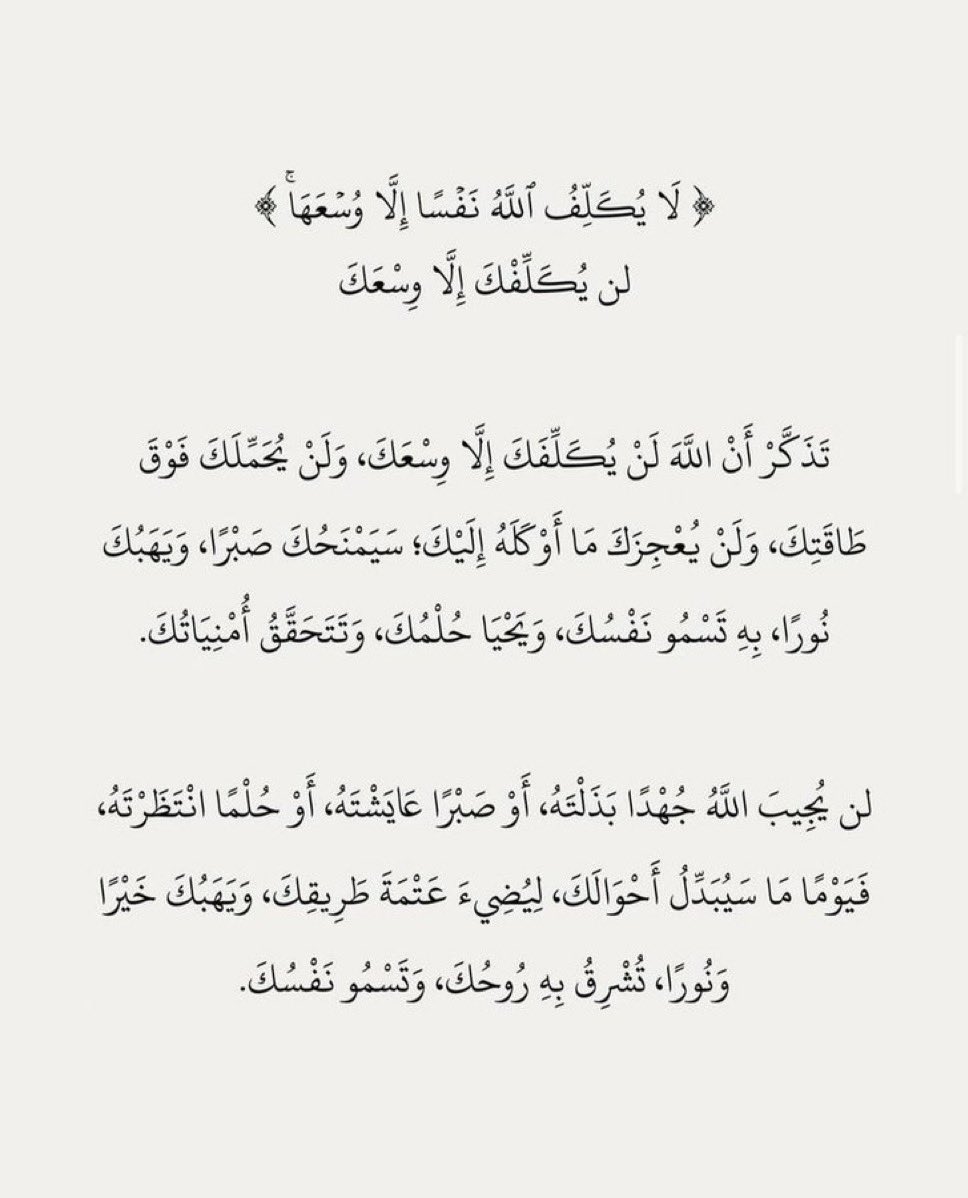 ﴿ لَا يُكَلِّفُ ٱللَّهُ نَفۡسًا إِلَّا وُسۡعَهَاۚ ﴾
لن يُكَلِّفْكَ إِلَّا وِسْعَكَ
تَذَكَّرْ أَنْ اللَّهَ لَنْ يُكَلِّفَكَ إِلَّا وِسْعَكَ، وَلَنْ يُحَمِّلَكَ فَوْقَ
طَاقَتِكَ، وَلَنْ يُعْجِزَكَ مَا أَوْكَلَهُ إِلَيْكَ؛ سَيَمْنَحُكَ صَبْرًا، وَيَهَبُكَ
نُورًا، بِهِ تَسْمُو نَفْسُكَ، وَيَحْيَا حُلْمُكَ، وَتَتَحَقَّقُ أُمْنِيَاتُكَ.
لن يُجِيبَ اللَّهُ جُهْدًا بَذَلْتَهُ، أَوْ صَبْرًا عَايَشْتَهُ، أَوْ حُلْمًا انْتَظَرْتَهُ،
فَيَوْمًا مَا سَيُبَدِّلُ أَحْوَالَكَ، لِيُضِيءَ عَتْمَةَ طَرِيقِكَ، وَيَهَبُكَ خَيْرًا
وَنُورًا، تُشْرِقُ بِهِ رُوحُكَ، وَتَسْمُو نَفْسُكَ.